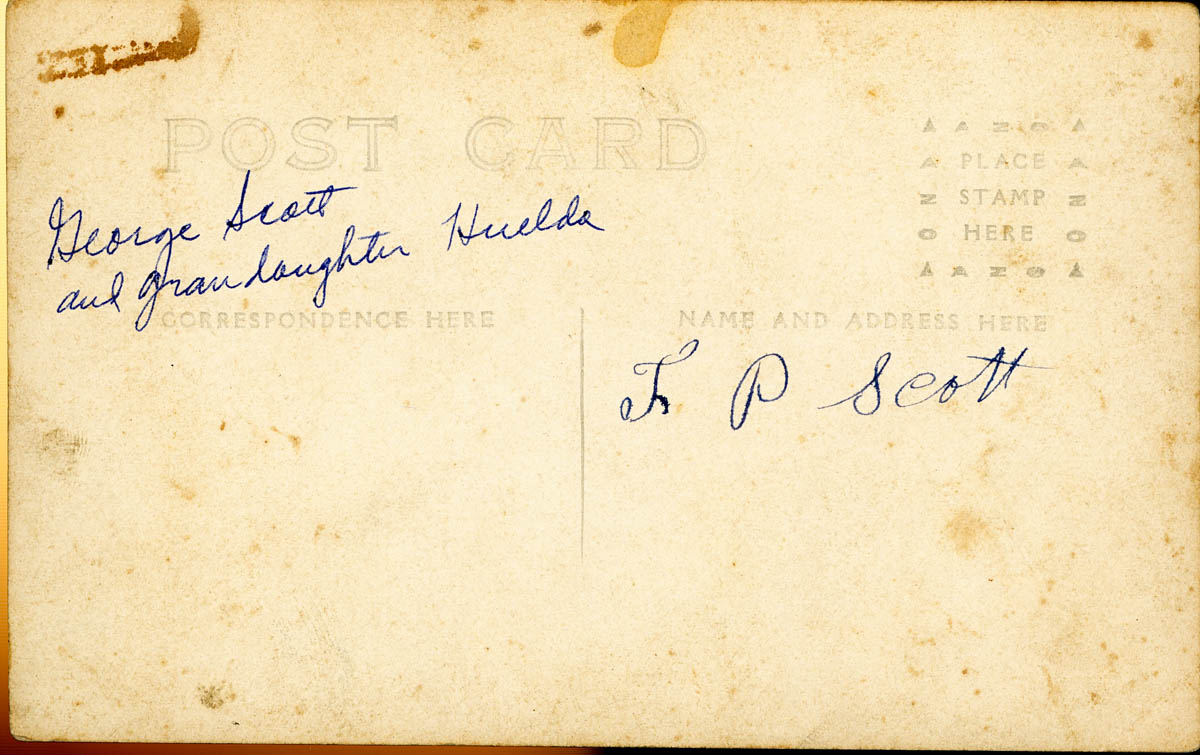 POST CARD
AZO
PLACE
STAMP
HERE
AZO
AZO
AZO
George Scott
and grandaughter Huelda
CORRESPONDENCE HERE
NAME AND ADDRESS HERE
P Scott